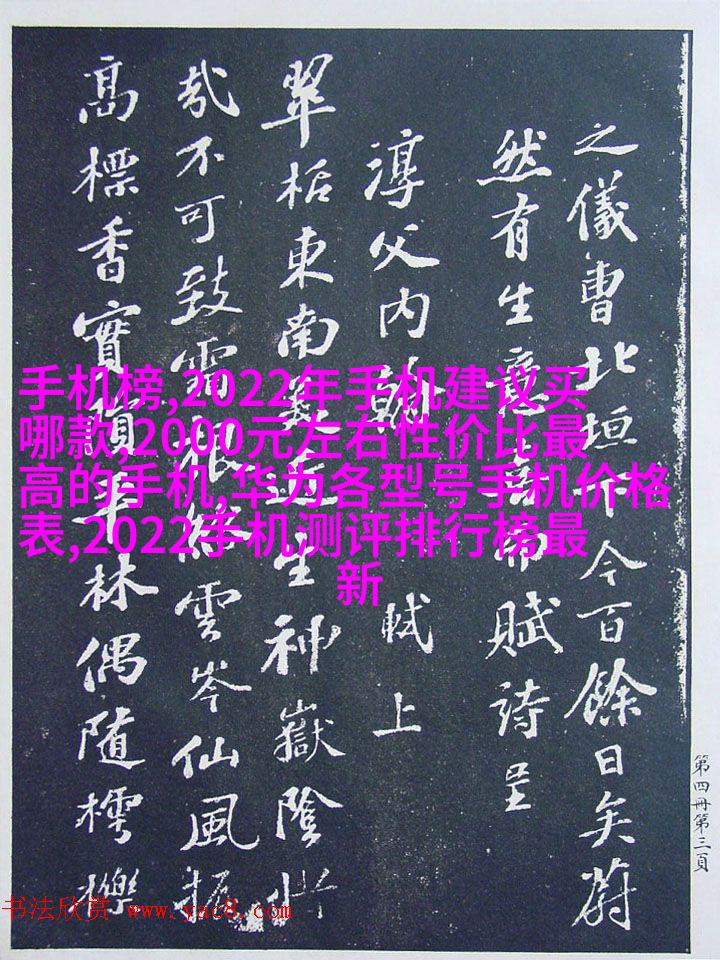 之儀曹北垣下今百餘日矣蔚
然有生意喜而賦詩呈
淳父內翰 軾上
翠栝東南美近生神嶽陰惜
哉不可致霜根絡雲岑仙風振
高標香實隕平林偶隨樗櫟
手机榜,2022年手机建议买
哪款,2000元左右性价比最
高的手机,华为各型号手机价格
表,2022手机测评排行榜最
新
第四冊第三頁
书法欣赏 www.yac8.com